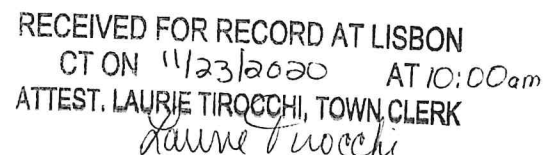 RECEIVED FOR RECORD AT LISBON
CT ON 11/23/2020 AT 10:00am
ATTEST. LAURIE TIROCCHI, TOWN CLERK
Laurie Tirocchi